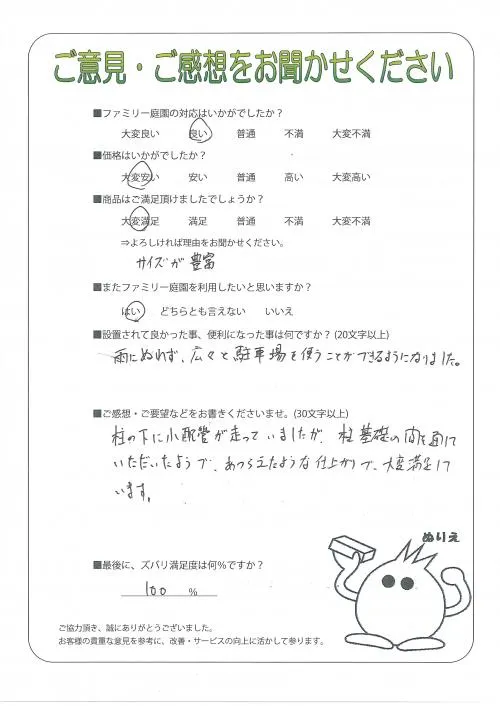 ご意見・ご感想をお聞かせください
■ファミリー庭園の対応はいかがでしたか？
大変良い 良い 普通 不満 大変不満
■価格はいかがでしたか？
大変安い 安い 普通 高い 大変高い
■商品はご満足頂けましたでしょうか？
大変満足 満足 普通 不満 大変不満
⇒よろしければ理由をお聞かせください。
サイズが豊富
■またファミリー庭園を利用したいと思いますか？
はい どちらとも言えない いいえ
■設置されて良かった事、便利になった事は何ですか？(20文字以上)
雨にぬれず、広々と駐車場を使うことができるようになりました。
■ご感想・ご要望などをお書きくださいませ。(30文字以上)
柱の下に小配管が走っていましたが、柱基礎の間を通して
いただいたようで、あつらえたような仕上がりで、大変満足して
います。
ぬりえ
■最後に、ズバリ満足度は何％ですか？
100 %
ご協力頂き、誠にありがとうございました。
お客様の貴重な意見を参考に、改善・サービスの向上に活かして参ります。